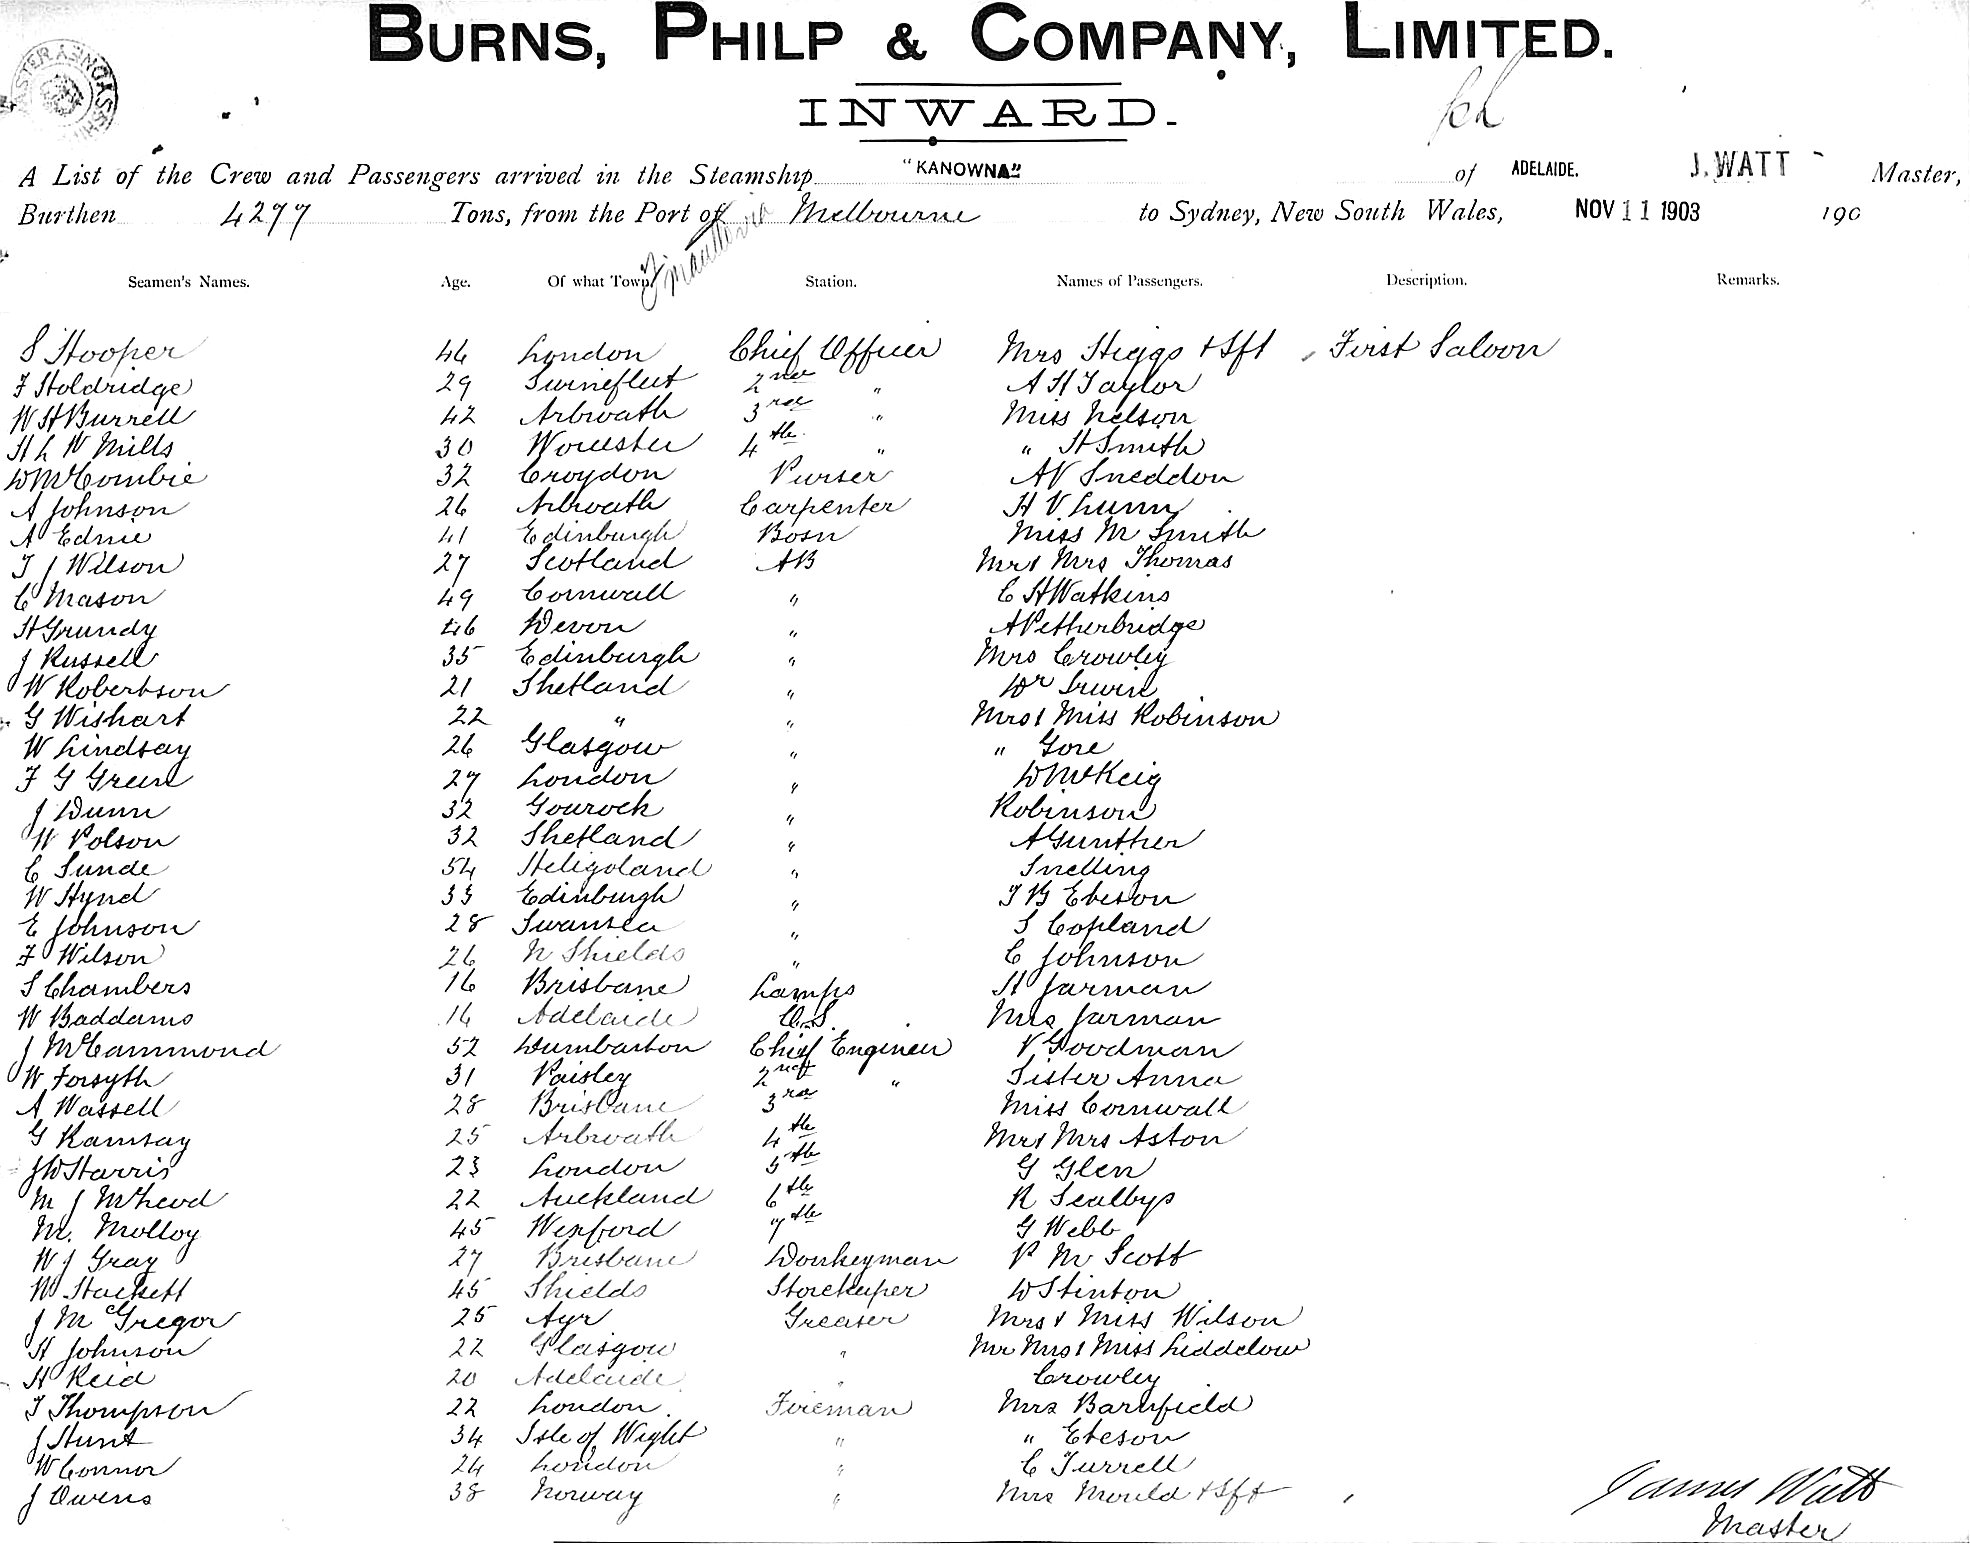 BURNS, PHILP & COMPANY, LIMITED.
INWARD.
A List of the Crew and Passengers arrived in the Steamship "KANOWNA" of ADELAIDE. J. WATT Master,
Burthen 4277 Tons, from the Port of Fremantle via Melbourne to Sydney, New South Wales, NOV 11 1903 190
Seamen's Names. Age. Of what Town. Station. Names of Passengers. Description. Remarks.
S Hooper 46 London Chief Officer Mrs Higgs + Sft First Saloon
F Holdridge 29 Swinefleet 2nd " A H Taylor
W H Burrell 42 Arbroath 3rd " Miss Nelson
H L W Mills 30 Worcester 4th " " H Smith
D McCombie 32 Croydon Purser A V Sneddon
A Johnson 26 Arbroath Carpenter H V Lunn
A Ednie 41 Edinburgh Bosn Miss M Smith
T J Wilson 27 Scotland AB Mr & Mrs Thomas
C Mason 49 Cornwall " C H Watkins
H Grundy 46 Devon " A Petherbridge
J Russell 35 Edinburgh " Mrs Crowley
W Robertson 21 Shetland " Dr Irwin
G Wishart 22 " " Mrs & Miss Robinson
W Lindsay 26 Glasgow " " Gore
F G Green 27 London " D McKeig
J Dunn 32 Gourock " Robinson
W Polson 32 Shetland " A Gunther
C Sunde 54 Heligoland " Snelling
W Hynd 33 Edinburgh " T B Ebeson
E Johnson 28 Swansea " S Copland
F Wilson 26 N Shields " C Johnson
S Chambers 16 Brisbane Lamps H Jarman
W Baddams 16 Adelaide O.S. Mrs Jarman
J McCammond 52 Dumbarton Chief Engineer V Goodman
W Forsyth 31 Paisley 2nd " Sister Anna
A Wassell 28 Brisbane 3rd Miss Cornwall
G Ramsay 25 Arbroath 4th Mr & Mrs Aston
J W Harris 23 London 5th G Glen
M J McLeod 22 Auckland 6th R Scalbys
M. Molloy 45 Wexford 7th G Webb
W J Gray 27 Brisbane Donkeyman P M Scott
W Hackett 45 Shields Storekeeper W Stinton
J McGregor 25 Ayr Greaser Mrs & Miss Wilson
H Johnson 22 Glasgow " Mr Mrs & Miss Liddelow
H Reid 20 Adelaide " Crowley
T Thompson 22 London Fireman Mrs Barnfield
J Hunt 34 Isle of Wight " " Ebeson
W Connor 24 London " C Turrell
J Owens 38 Norway " Mrs Mould + Sft
James Watt
Master